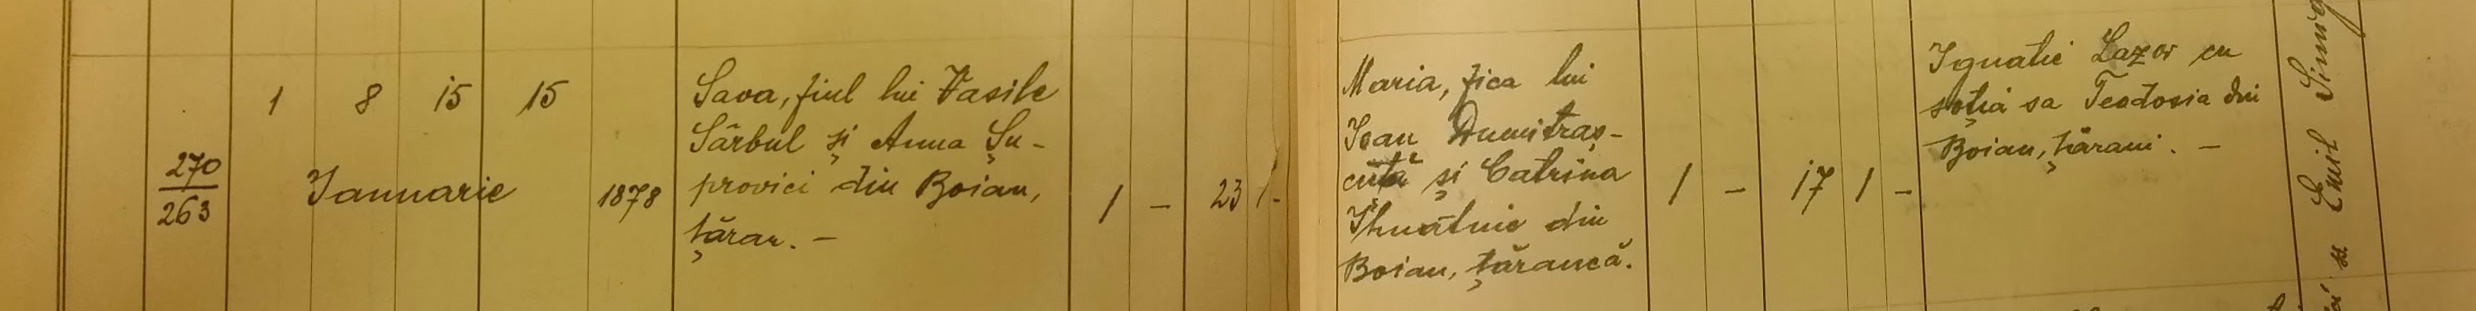 1 8 15 15
270
263
Ianuarie 1878
Sava, fiul lui Vasile
Sârbul și Anna Șu-
provici din Boian,
țăran. —
1 — 23 1 -
Maria, fica lui
Ioan Dumitraș-
cuță și Catrina
din
Boian, țărancă.
1 — 17 1 -
Ignatie Lazor cu
soția sa Teodosia din
Boian, țărani. —
Emil